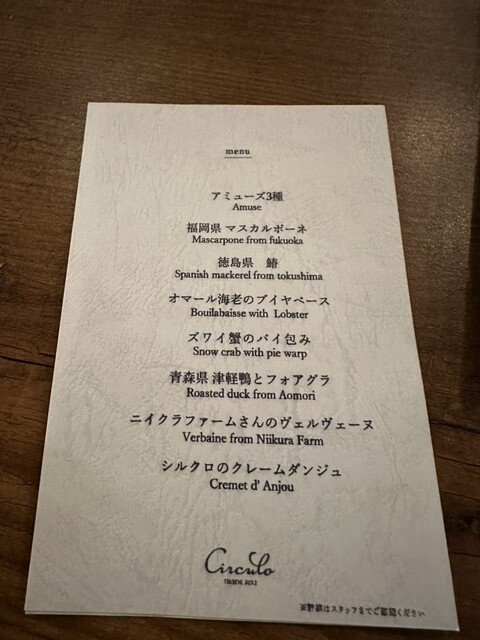 menu
アミューズ3種
Amuse
福岡県 マスカルポーネ
Mascarpone from fukuoka
徳島県 鰆
Spanish mackerel from tokushima
オマール海老のブイヤベース
Bouilabaisse with Lobster
ズワイ蟹のパイ包み
Snow crab with pie warp
青森県 津軽鴨とフォアグラ
Roasted duck from Aomori
ニイクラファームさんのヴェルヴェーヌ
Verbaine from Niikura Farm
シルクロのクレームダンジュ
Cremet d' Anjou
Circulo
※詳細はスタッフまでご確認ください